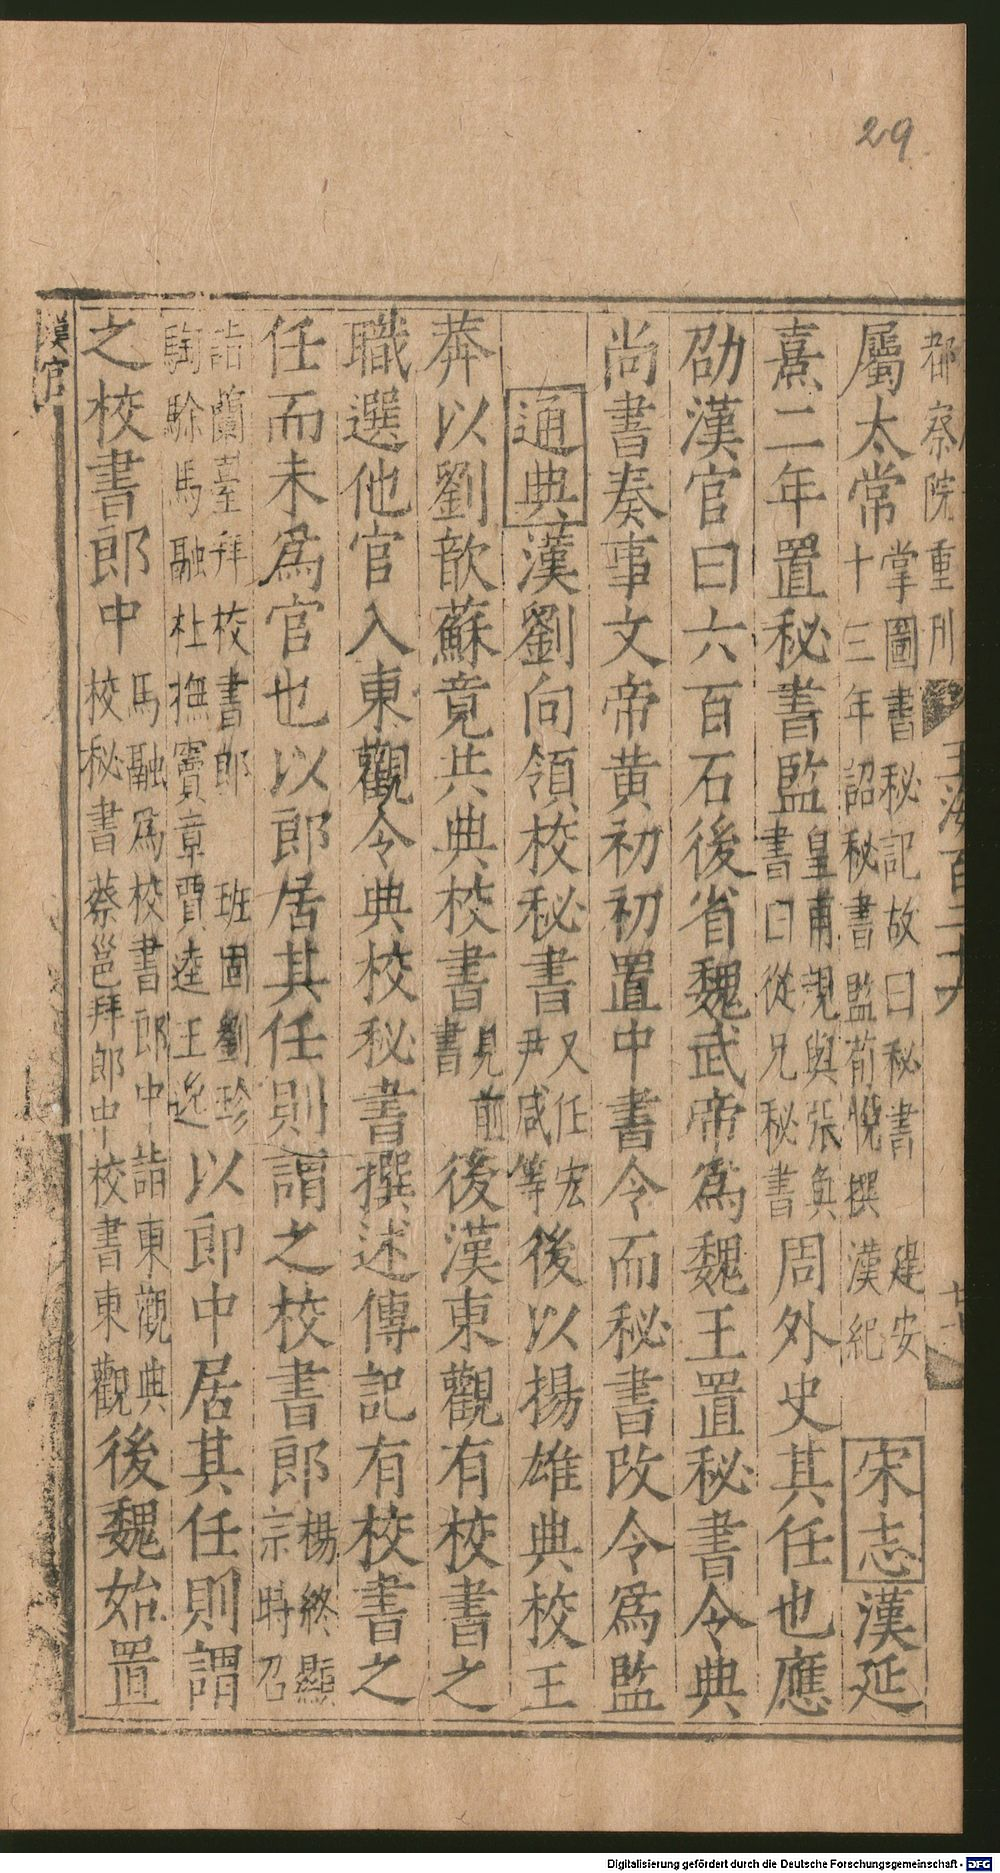 29
都察院重刊
玉海百二十六
屬太常掌圖書秘記故曰秘書十三年詔秘書監荀悅撰漢紀建安宋志漢延
熹二年置秘書監皇甫規與張奐書曰從兄秘書周外史其任也應
劭漢官曰六百石後省魏武帝為魏王置秘書令典
尚書奏事文帝黃初初置中書令而秘書改令為監
通典漢劉向領校秘書又任宏尹咸等後以揚雄典校王
莽以劉歆蘇竟共典校書見前書後漢東觀有校書之
職選他官入東觀令典校秘書撰述傳記有校書之
任而未為官也以郎居其任則謂之校書郎楊終顯宗時召
詣蘭臺拜校書郎班固劉珍騊駼馬融杜撫竇章賈逵王逸以郎中居其任則謂
之校書郎中馬融為校書郎中詣東觀典校秘書蔡邕拜郎中校書東觀後魏始置
漢官
Digitalisierung gefördert durch die Deutsche Forschungsgemeinschaft - DFG